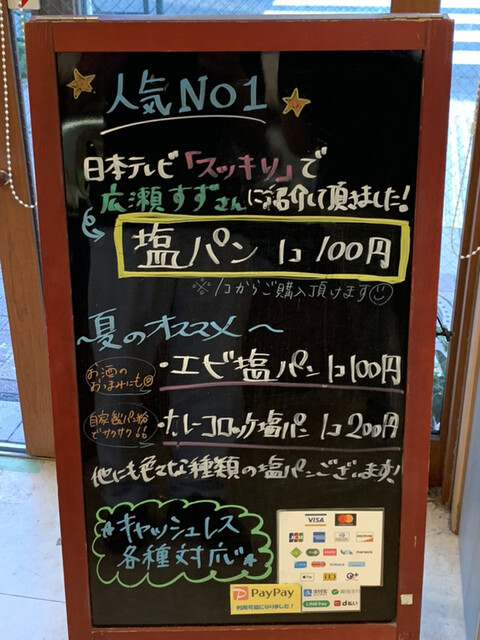 人気No1
日本テレビ「スッキリ」で
広瀬すずさんにご紹介して頂きました!
塩パン 1コ 100円
※1コからご購入頂けます
〜夏のオススメ〜
お酒の
おつまみにも
・エビ塩パン 1コ100円
自家製パン粉
でサクサク!!
・カレーコロッケ塩パン 1コ200円
他にも色々な種類の塩パンございます!
キャッシュレス
各種対応
VISA
mastercard
JCB
DISCOVER
Pay
iD
QUICPay
LINE Pay
d払い
PayPay
利用可能になりました!